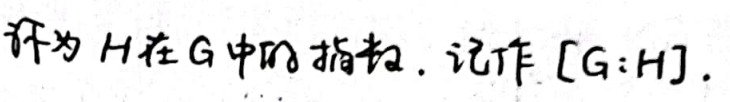 称为 H 在 G 中的指数. 记作 [G:H].